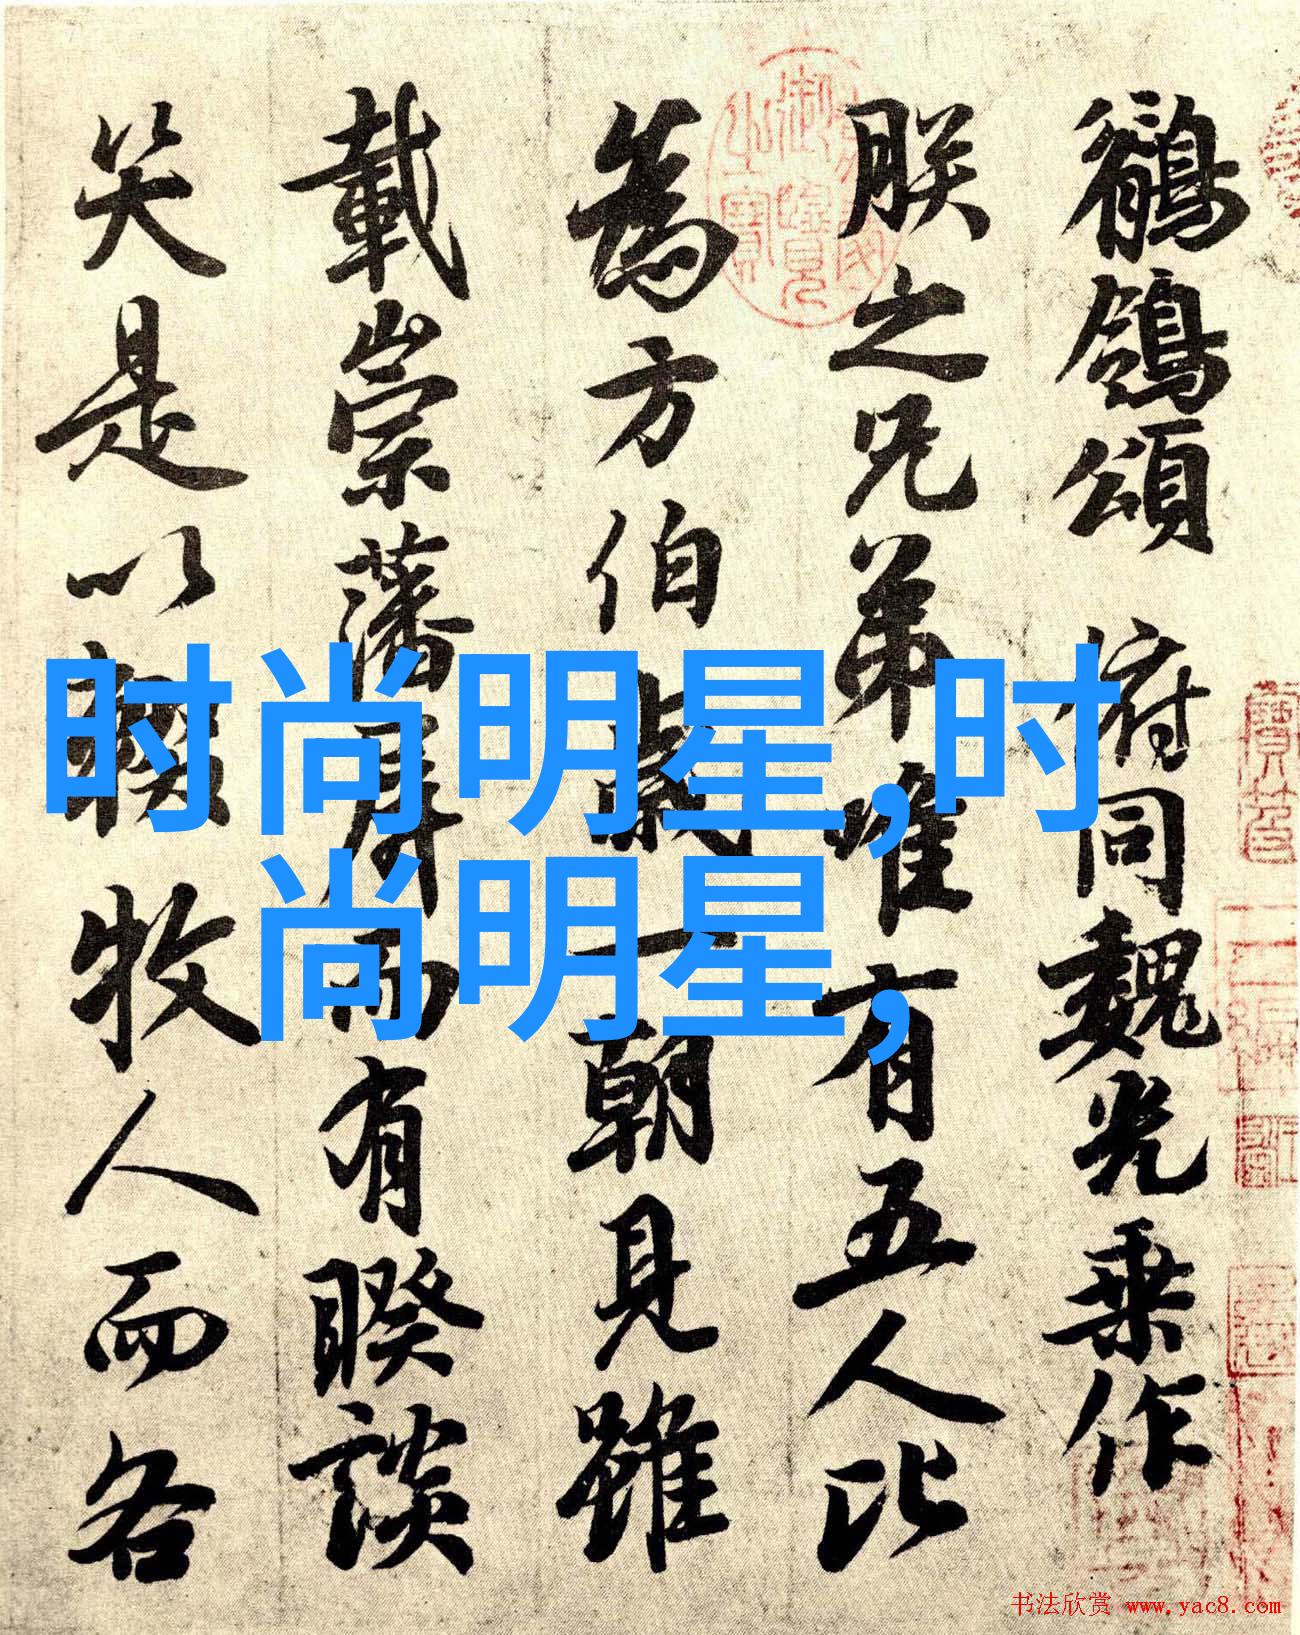 鶺鴒頌 俯同魏光乗作
朕之兄弟唯有五人比
為方伯歲一朝見雖
載崇藩屏而有睽談
笑是以輟牧人而各
时尚明星,时
尚明星,
书法欣赏 www.yac8.com